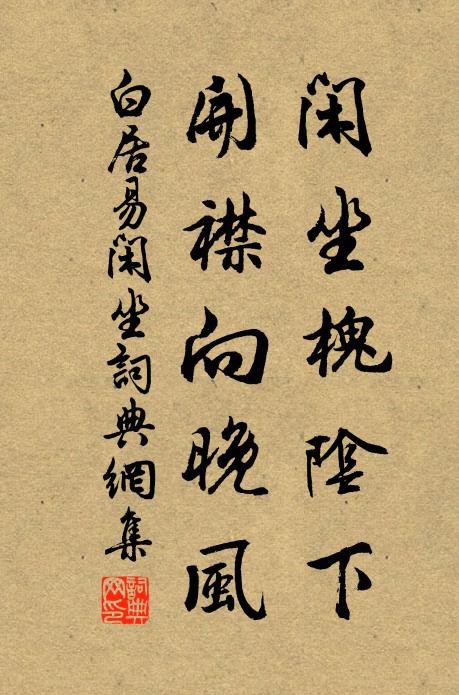 閑坐槐陰下
開襟向晚風
白居易閑坐詞典網集
詞典網印